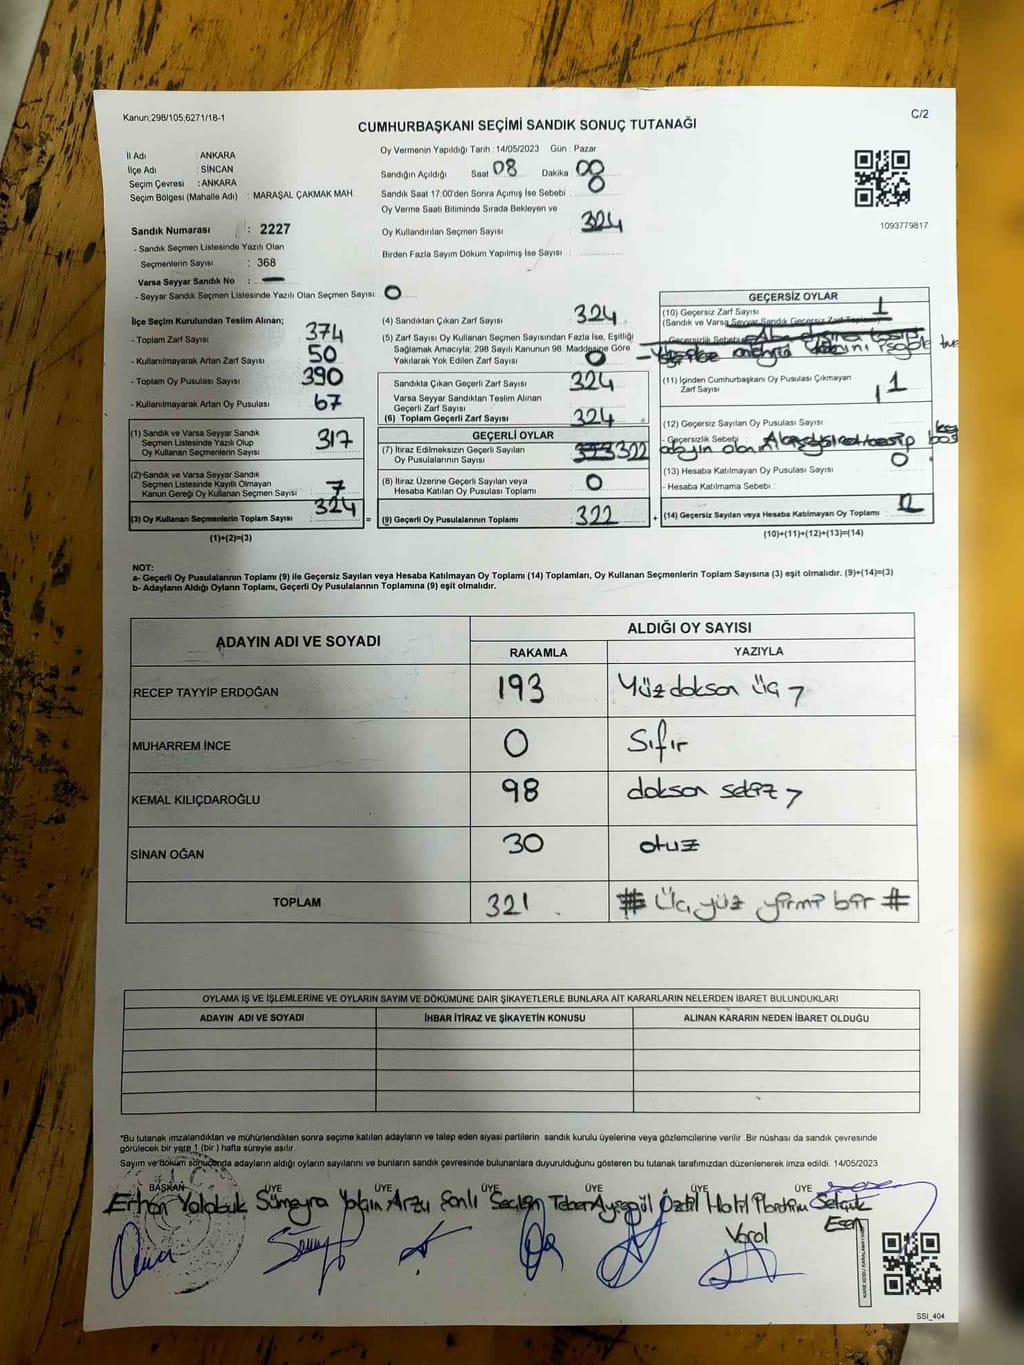 Kanun;298/105,6271/18-1
C/2
CUMHURBAŞKANI SEÇİMİ SANDIK SONUÇ TUTANAĞI
İl Adı : ANKARA
İlçe Adı : SİNCAN
Seçim Çevresi : ANKARA
Seçim Bölgesi (Mahalle Adı) : MARAŞAL ÇAKMAK MAH
Sandık Numarası : 2227
- Sandık Seçmen Listesinde Yazılı Olan
Seçmenlerin Sayısı : 368
Varsa Seyyar Sandık No : —
- Seyyar Sandık Seçmen Listesinde Yazılı Olan Seçmen Sayısı: 0
Oy Vermenin Yapıldığı Tarih : 14/05/2023 Gün : Pazar
Sandığın Açıldığı Saat 08 Dakika 08
Sandık Saat 17:00'den Sonra Açmış İse Sebebi : 0
Oy Verme Saati Bitiminde Sırada Bekleyen ve
Oy Kullandırılan Seçmen Sayısı : 324
Birden Fazla Sayım Döküm Yapılmış İse Sayısı :
1093779817
İlçe Seçim Kurulundan Teslim Alınan;
- Toplam Zarf Sayısı : 374
- Kullanılmayarak Artan Zarf Sayısı : 50
- Toplam Oy Pusulası Sayısı : 390
- Kullanılmayarak Artan Oy Pusulası : 67
(1) Sandık ve Varsa Seyyar Sandık
Seçmen Listesinde Yazılı Olup
Oy Kullanan Seçmenlerin Sayısı : 317
(2) Sandık ve Varsa Seyyar Sandık
Seçmen Listesinde Kayıtlı Olmayan
Kanun Gereği Oy Kullanan Seçmen Sayısı : 7
(3) Oy Kullanan Seçmenlerin Toplam Sayısı : 324
(1)+(2)=(3)
(4) Sandıktan Çıkan Zarf Sayısı : 324
(5) Zarf Sayısı Oy Kullanan Seçmen Sayısından Fazla İse, Eşitliği
Sağlamak Amacıyla; 298 Sayılı Kanunun 98. Maddesine Göre
Yakılarak Yok Edilen Zarf Sayısı : 0
Sandıkta Çıkan Geçerli Zarf Sayısı : 324
Varsa Seyyar Sandıktan Teslim Alınan
Geçerli Zarf Sayısı :
(6) Toplam Geçerli Zarf Sayısı : 324
GEÇERLİ OYLAR
(7) İtiraz Edilmeksizin Geçerli Sayılan
Oy Pusulalarının Sayısı : 322
(8) İtiraz Üzerine Geçerli Sayılan veya
Hesaba Katılan Oy Pusulası Toplamı : 0
= (9) Geçerli Oy Pusulalarının Toplamı : 322 +
GEÇERSİZ OYLAR
(10) Geçersiz Zarf Sayısı : 1
(Sandık ve Varsa Seyyar Sandık Geçersiz Zarf Toplamı)
- Geçersizlik Sebebi :
(11) İçinden Cumhurbaşkanı Oy Pusulası Çıkmayan
Zarf Sayısı : 1
(12) Geçersiz Sayılan Oy Pusulası Sayısı :
- Geçersizlik Sebebi :
(13) Hesaba Katılmayan Oy Pusulası Sayısı : 0
- Hesaba Katılmama Sebebi :
(14) Geçersiz Sayılan veya Hesaba Katılmayan Oy Toplamı :
(10)+(11)+(12)+(13)=(14)
NOT:
a- Geçerli Oy Pusulalarının Toplamı (9) ile Geçersiz Sayılan veya Hesaba Katılmayan Oy Toplamı (14) Toplamları, Oy Kullanan Seçmenlerin Toplam Sayısına (3) eşit olmalıdır. (9)+(14)=(3)
b- Adayların Aldığı Oyların Toplamı, Geçerli Oy Pusulalarının Toplamına (9) eşit olmalıdır.
ADAYIN ADI VE SOYADI
ALDIĞI OY SAYISI
RAKAMLA YAZIYLA
RECEP TAYYİP ERDOĞAN 193 Yüz dokson üç
MUHARREM İNCE 0 Sıfır
KEMAL KILIÇDAROĞLU 98 dokson sekiz
SİNAN OĞAN 30 otuz
TOPLAM 321 # Üç yüz yirmi bir #
OYLAMA İŞ VE İŞLEMLERİNE VE OYLARIN SAYIM VE DÖKÜMÜNE DAİR ŞİKAYETLERLE BUNLARA AİT KARARLARIN NELERDEN İBARET BULUNDUKLARI
ADAYIN ADI VE SOYADI İHBAR İTİRAZ VE ŞİKAYETİN KONUSU ALINAN KARARIN NEDEN İBARET OLDUĞU
*Bu tutanak imzalandıktan ve mühürlendikten sonra seçime katılan adayların ve talep eden siyasi partilerin sandık kurulu üyelerine veya gözlemcilerine verilir. Bir nüshası da sandık çevresinde
görülecek bir yere 1 (bir) hafta süreyle asılır.
Sayım ve döküm sonucunda adayların aldığı oyların sayılarını ve bunların sandık çevresinde bulunanlara duyurulduğunu gösteren bu tutanak tarafımızdan düzenlenerek imza edildi. 14/05/2023
BAŞKAN ÜYE ÜYE ÜYE ÜYE ÜYE ÜYE
Erhan Yalabuk Sümeyra Yalçın Arzu Sanlı Seçkin Teber Ayşegül Özbil Halil İbrahim Selçuk
Varol Esen
KARE KODU KARALAMAYINIZ
SSİ_404